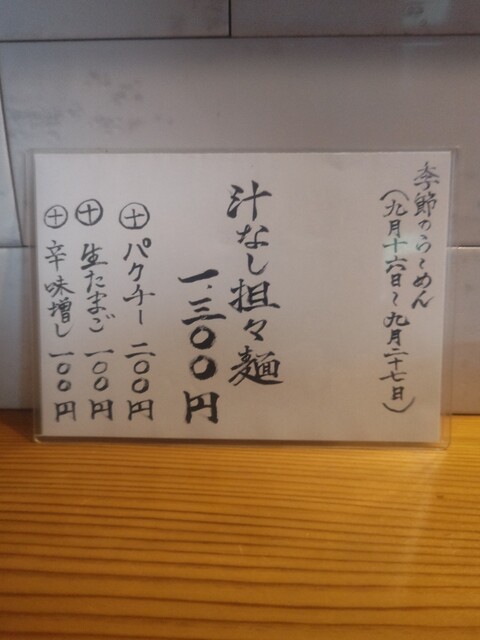 季節のらーめん
(九月十六日～九月二十七日)
汁なし担々麺
一、三〇〇円
⊕パクチー 二〇〇円
⊕生たまご 一〇〇円
⊕辛味増し 一〇〇円